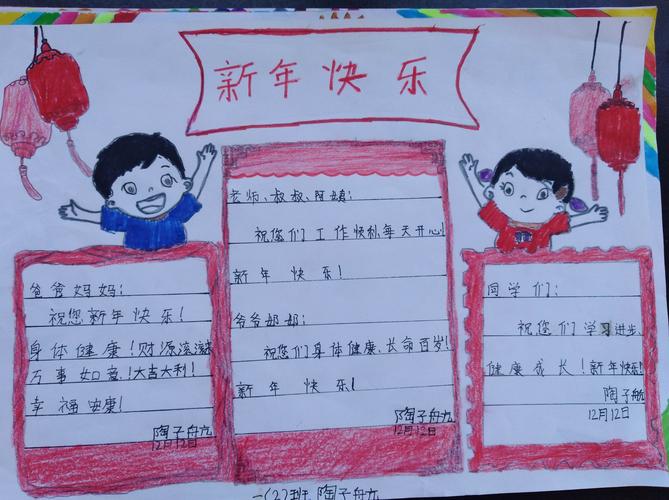 新年快乐
爸爸妈妈:
祝您新年快乐!
身体健康!财源滚滚来
万事如意!大吉大利!
幸福安康!
陶子航
12月12日
老师、叔叔、阿姨:
祝您们工作快利每天开心!
新年 快乐!
爷爷奶奶:
祝您们身体健康、长命百岁!
新年 快乐!
陶子航
12月12日
同学们:
祝您们学习进步、
健康成长!新年快乐!
陶子航
12月12日
一(2)班 陶子航